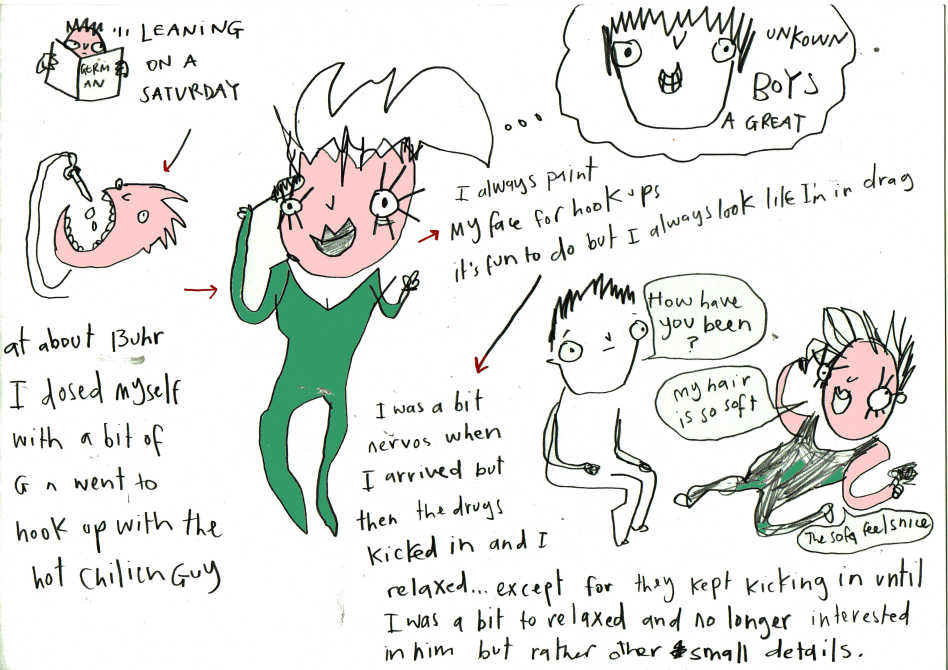 GERM
AN
LEANING
ON A
SATURDAY
UNKOWN
BOYS
A GREAT
I always paint
My face for hook ups
it's fun to do but I always look like I'm in drag
at about 13uhr
I dosed myself
with a bit of
G n went to
hook up with the
hot Chilien Guy
I was a bit
nervos when
I arrived but
then the drugs
Kicked in and I
relaxed... except for they kept kicking in until
I was a bit to relaxed and no longer interested
in him but rather other small details.
How have
you been
?
my hair
is so soft
The sofa feels nice